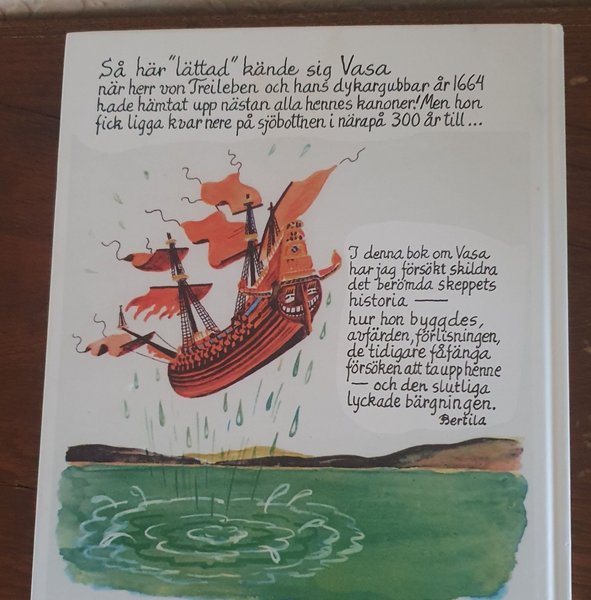 Så här "lättad" kände sig Vasa
när herr von Treileben och hans dykargubbar år 1664
hade hämtat upp nästan alla hennes kanoner! Men hon
fick ligga kvar nere på sjöbottnen i närapå 300 år till...
I denna bok om Vasa
har jag försökt skildra
det berömda skeppets
historia —
hur hon byggdes,
avfärden, förlisningen,
de tidigare fåfänga
försöken att ta upp henne
— och den slutliga
lyckade bärgningen.
Bertila